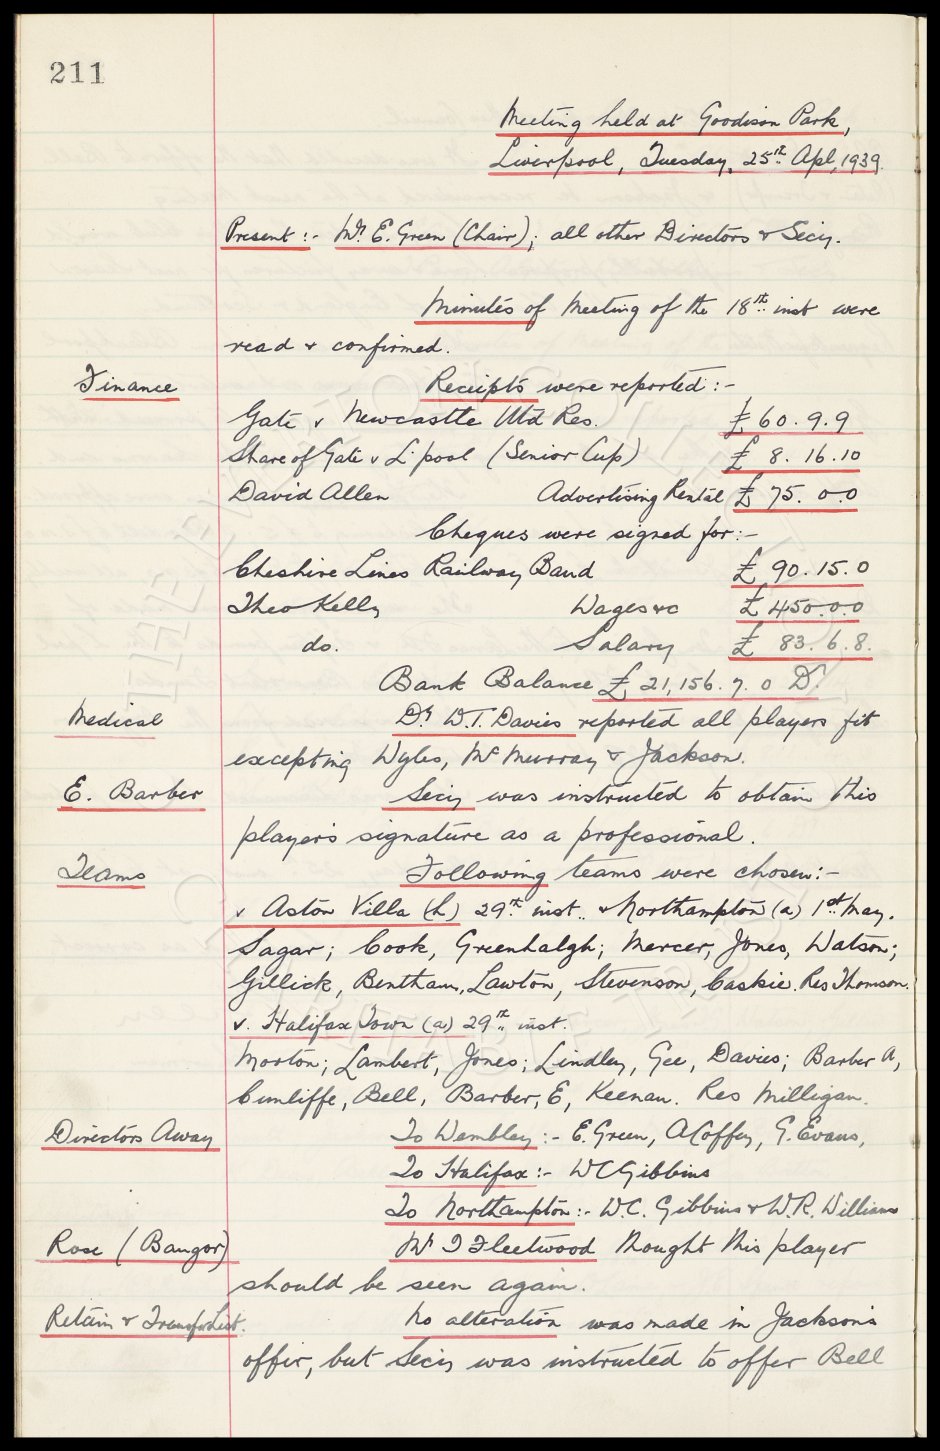 211
Meeting held at Goodison Park,
Liverpool, Tuesday, 25th Apl, 1939.
Present :- Mr. E. Green (Chair); all other Directors & Secy.
Minutes of Meeting of the 18th inst were
read & confirmed.
Finance Receipts were reported :-
Gate v Newcastle Utd Res. £60. 9. 9
Share of Gate v L'pool (Senior Cup) £ 8. 16. 10
David Allen Advertising Rental £ 75. 0. 0
Cheques were signed for:-
Cheshire Lines Railway Band £ 90. 15. 0
Theo Kelly Wages &c £ 450. 0. 0
do. Salary £ 83. 6. 8.
Bank Balance £ 21,156. 7. 0 Dr.
Medical Dr W.T. Davies reported all players fit
excepting Wyles, McMurray & Jackson.
E. Barber Secy was instructed to obtain this
player's signature as a professional.
Teams Following teams were chosen:-
v Aston Villa (h) 29th inst. & Northampton (a) 1st May.
Sagar; Cook, Greenhalgh; Mercer, Jones, Watson;
Gillick, Bentham, Lawton, Stevenson, Caskie. Res Thomson.
v. Halifax Town (a) 29th inst.
Morton; Lambert, Jones; Lindley, Gee, Davies; Barber A,
Cunliffe, Bell, Barber, E, Keenan. Res Milligan.
Directors Away To Wembley :- E. Green, A Coffey, G. Evans,
To Halifax :- W C Gibbins
To Northampton :- W.C. Gibbins & W.R. Williams
Rose (Bangor) Mr T Fleetwood thought this player
should be seen again.
Retain & Transfer List. No alteration was made in Jackson's
offer, but Secy was instructed to offer Bell